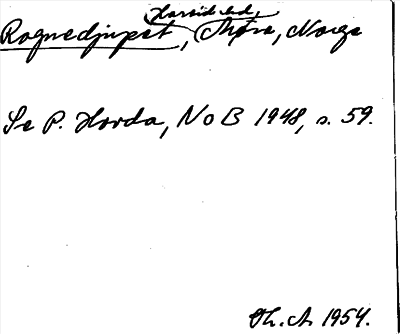 Rognedjupet, Hareid hd, Møre, Norge
Se P. Hovda, NoB 1948, s. 59.
Th. A. 1954.